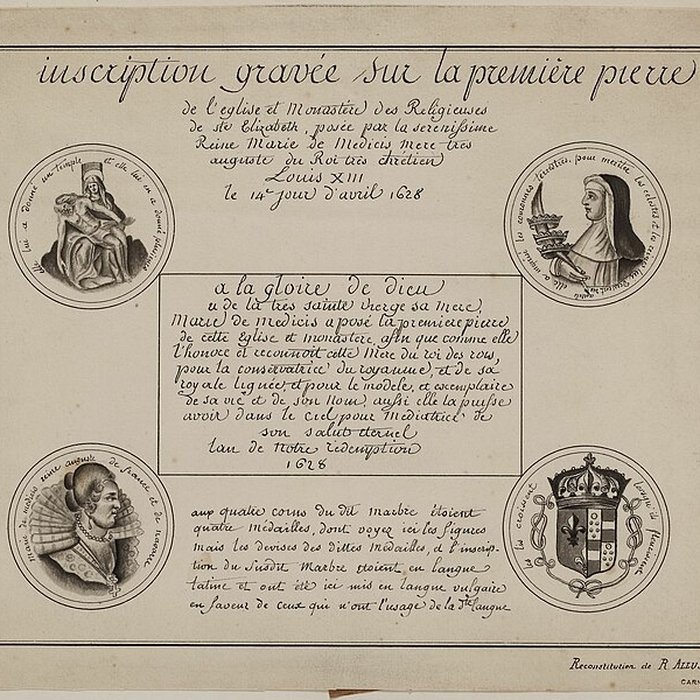 inscription gravée sur la première pierre
de l'eglise et Monastère des Religieuses
de ste Elizabeth, posée par la serenissime
Reine Marie de Medicis mere très
auguste du Roi très chrétien
Louis XIII
le 14e jour d'avril 1628
elle lui a donné un temple et elle lui en a donné plusieurs
elle a méprisé les couronnes terrestres pour meriter les celestes
a la gloire de dieu
et de la très sainte vierge sa mere,
Marie de medicis a posé la premiere pierre
de cette Eglise et monastere, afin que comme elle
l'honore et reconnoit cette Mere du roi des rois,
pour la conservatrice du royaume, et de sa
royale lignée, et pour le modele, et exemplaire
de sa vie et de son nom, aussi elle la puisse
avoir dans le ciel pour Mediatrice de
son salut eternel
l'an de notre redemption
1628
marie de medicis reine auguste de france et de navarre
aux quatre coins du dit marbre étoient
quatre medailles, dont voyez ici les figures
mais les devises des dittes medailles, et l'inscrip-
tion du susdit marbre etoient en langue
latine et ont été ici mis en langue vulgaire
en faveur de ceux qui n'ont l'usage de la dte langue
les lis croissent
Reconstitution de R. ALLUS
CARN